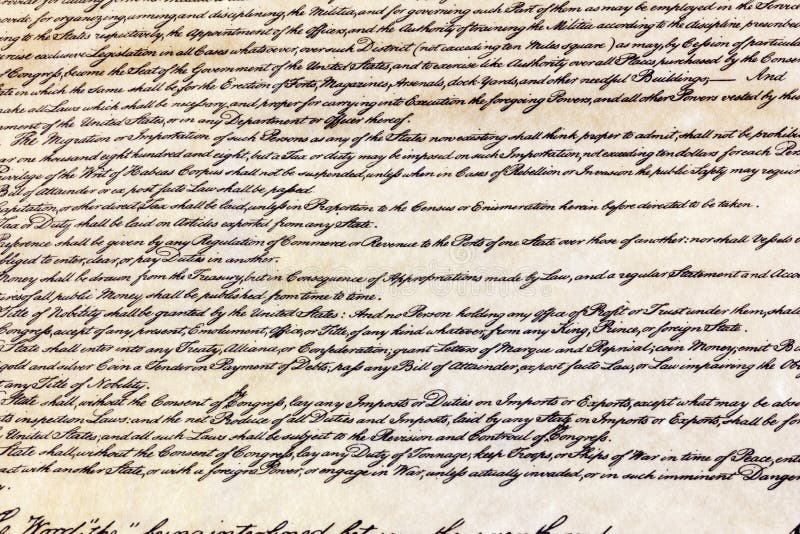 rovide for organizing, arming, and disciplining, the Militia, and for governing such Part of them as may be employed in the Service
ing to the States respectively, the Appointment of the Officers, and the Authority of training the Militia according to the discipline prescribed
ercise exclusive Legislation in all Cases whatsoever, over such District (not exceeding ten Miles square) as may, by Cession of particular
f Congress, become the Seat of the Government of the United States, and to exercise like Authority over all Places purchased by the Consent
ate in which the Same shall be, for the Erection of Forts, Magazines, Arsenals, dock-Yards, and other needful Buildings;— And
make all Laws which shall be necessary and proper for carrying into Execution the foregoing Powers, and all other Powers vested by this
rnment of the United States, or in any Department or Officer thereof.
The Migration or Importation of such Persons as any of the States now existing shall think proper to admit, shall not be prohibi
ar one thousand eight hundred and eight, but a Tax or duty may be imposed on such Importation, not exceeding ten dollars for each Per
Privilege of the Writ of Habeas Corpus shall not be suspended, unless when in Cases of Rebellion or Invasion the public Safety may requir
Bill of Attainder or ex post facto Law shall be passed.
Capitation, or other direct, Tax shall be laid, unless in Proportion to the Census or Enumeration herein before directed to be taken.
Tax or Duty shall be laid on Articles exported from any State.
Preference shall be given by any Regulation of Commerce or Revenue to the Ports of one State over those of another: nor shall Vessels b
obliged to enter, clear, or pay Duties in another.
Money shall be drawn from the Treasury, but in Consequence of Appropriations made by Law; and a regular Statement and Acco
tures of all public Money shall be published from time to time.
Title of Nobility shall be granted by the United States: And no Person holding any Office of Profit or Trust under them, shall
Congress, accept of any present, Emolument, Office, or Title, of any kind whatever, from any King, Prince, or foreign State.
State shall enter into any Treaty, Alliance, or Confederation; grant Letters of Marque and Reprisal; coin Money; emit Bi
gold and silver Coin a Tender in Payment of Debts; pass any Bill of Attainder, ex post facto Law, or Law impairing the Ob
t any Title of Nobility.
State shall, without the Consent of the Congress, lay any Imposts or Duties on Imports or Exports, except what may be abso
its inspection Laws: and the net Produce of all Duties and Imposts, laid by any State on Imports or Exports, shall be for
United States; and all such Laws shall be subject to the Revision and Controul of the Congress.
State shall, without the Consent of Congress, lay any Duty of Tonnage, keep Troops, or Ships of War in time of Peace, ente
act with another State, or with a foreign Power, or engage in War, unless actually invaded, or in such imminent Danger
y.
e Word "the," being interlined